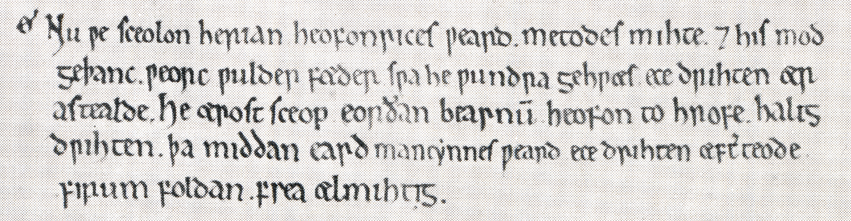 Nu ƿe sceolon herian heofonrices ƿeard. metodes mihte. ⁊ his mod
geþanc. ƿeorc ƿulder fæder. sƿa he ƿundra gehƿæs ece drihten ær
astealde. he ærost sceop eorðan bearnū heofon to hrofe. halig
drihten. þa middan eard mancynnes ƿeard ece drihten æft͛ teode
firum foldan. frea ælmihtig.